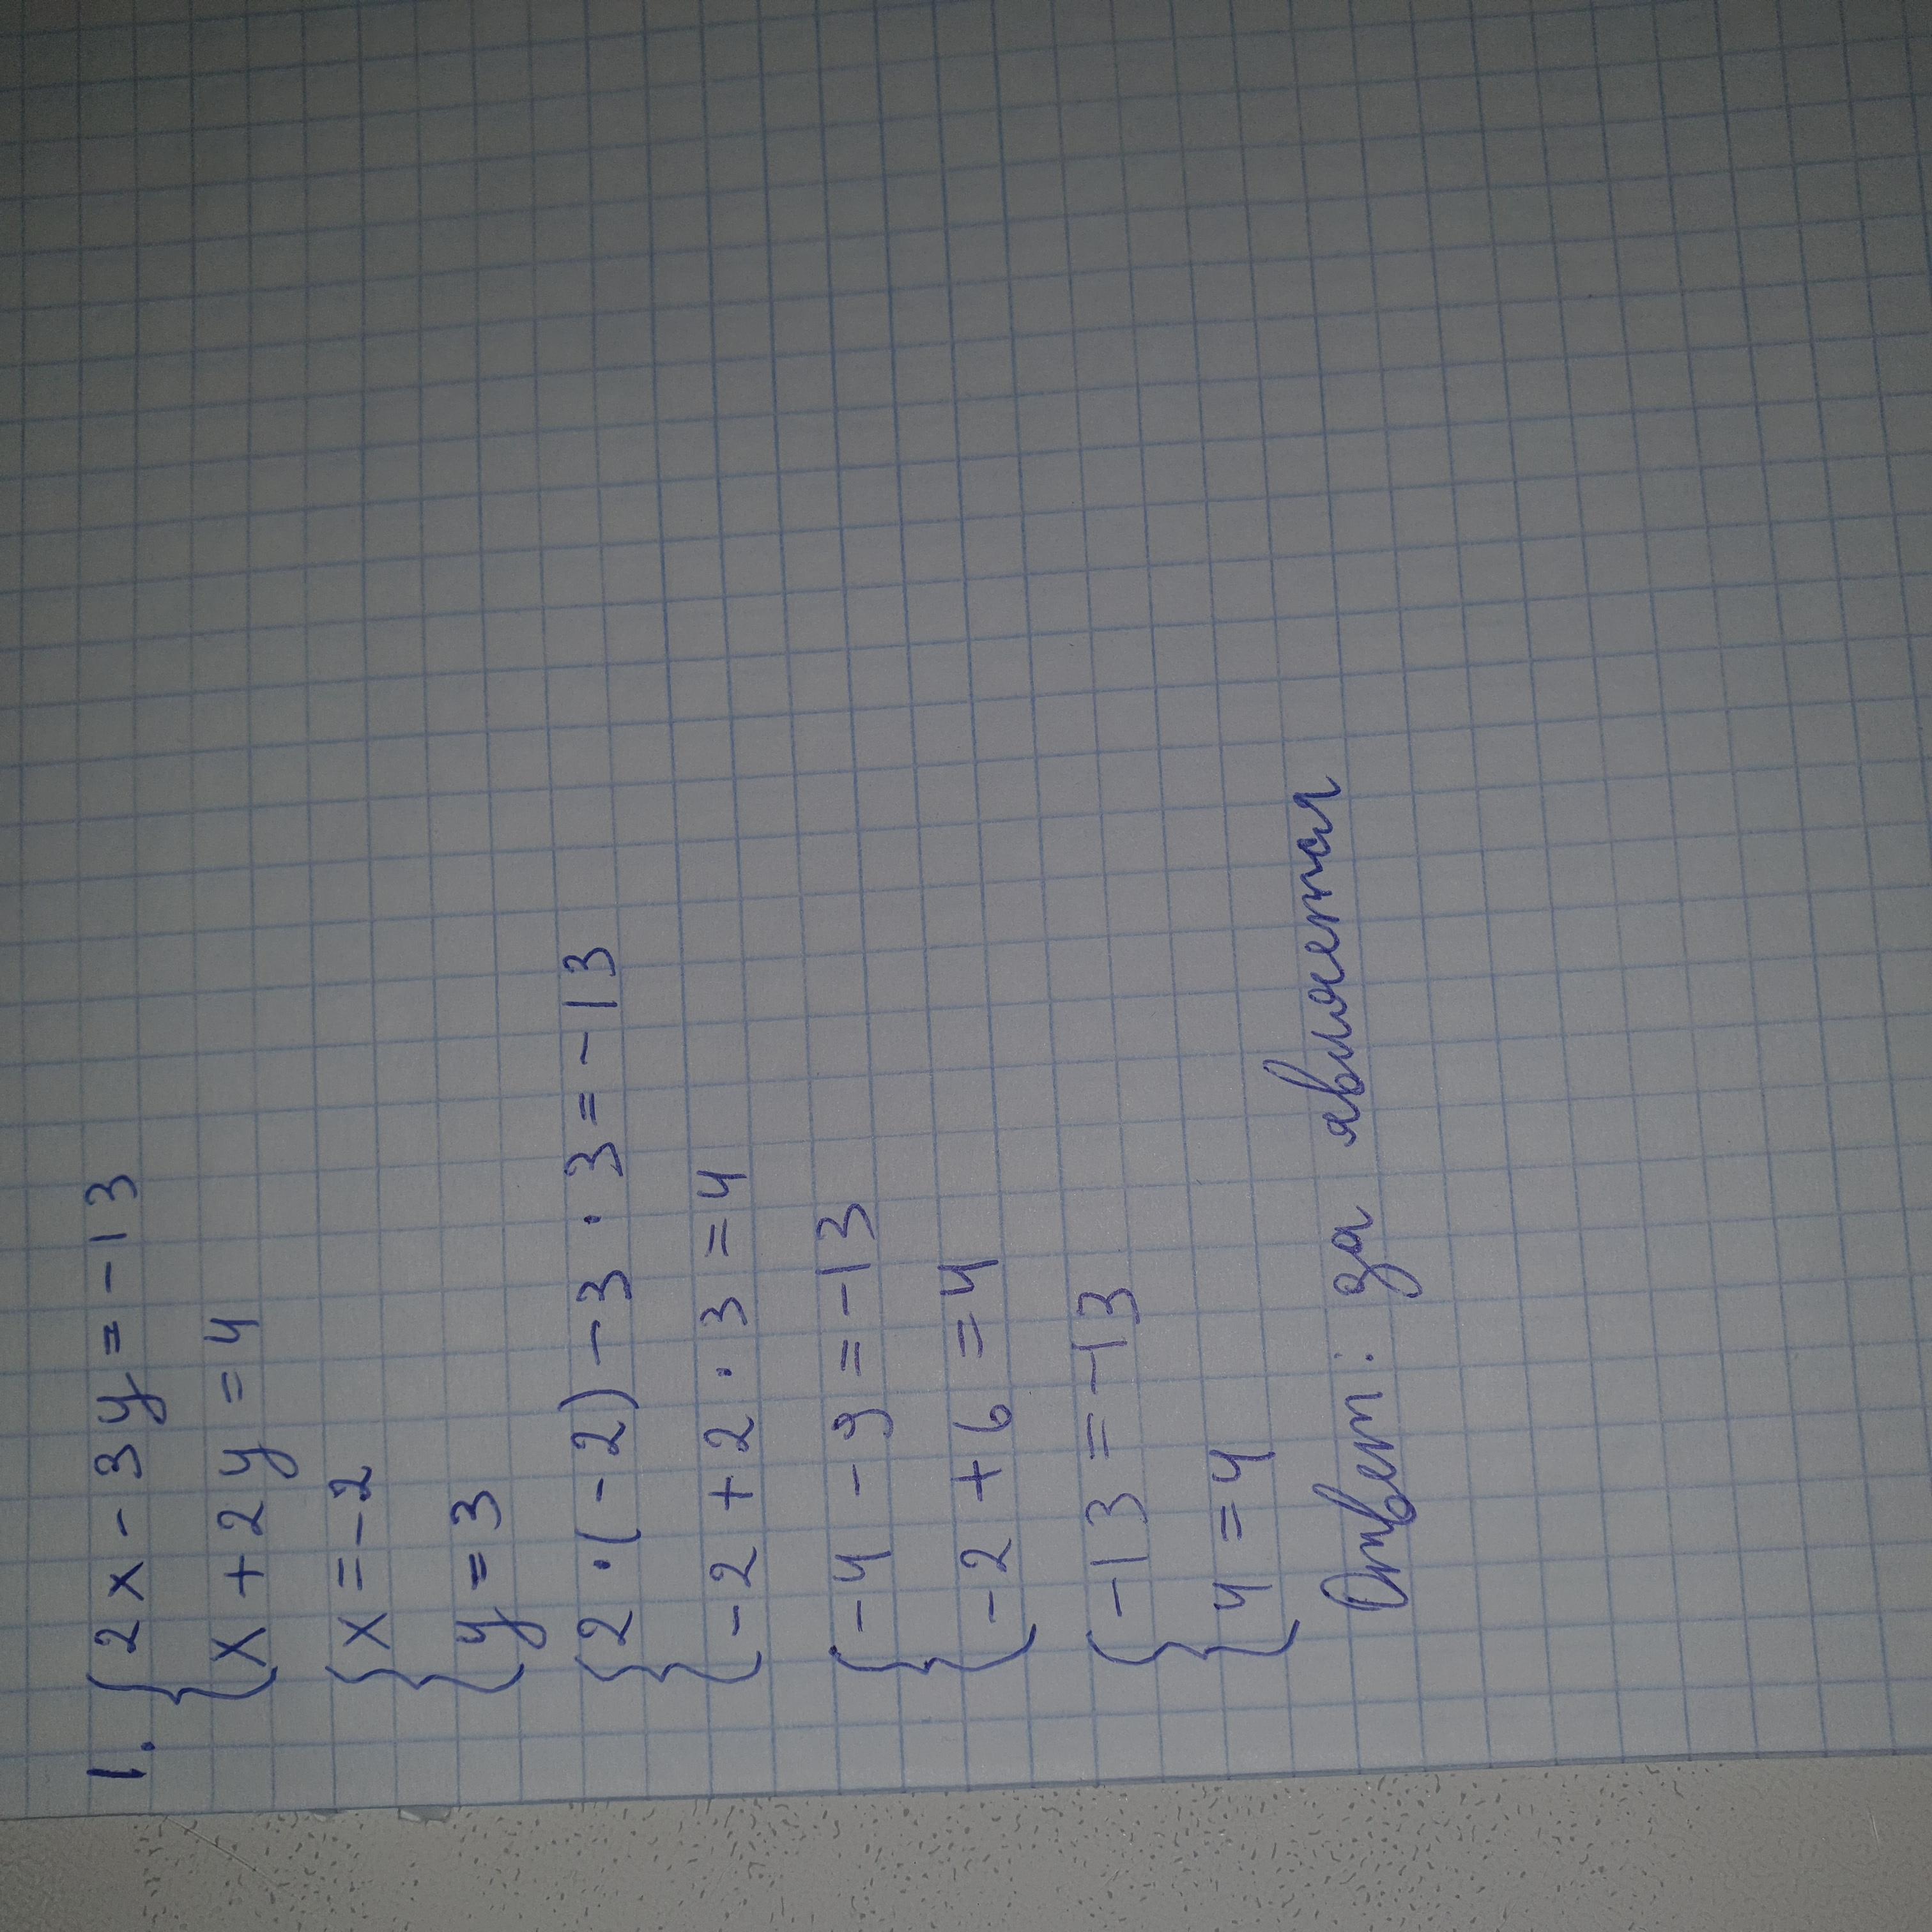 1. { 2x - 3y = -13
x + 2y = 4
{ x = -2
y = 3
{ 2 · (-2) - 3 · 3 = -13
-2 + 2 · 3 = 4
{ -4 - 9 = -13
-2 + 6 = 4
{ -13 = -13
4 = 4
Ответ: да является